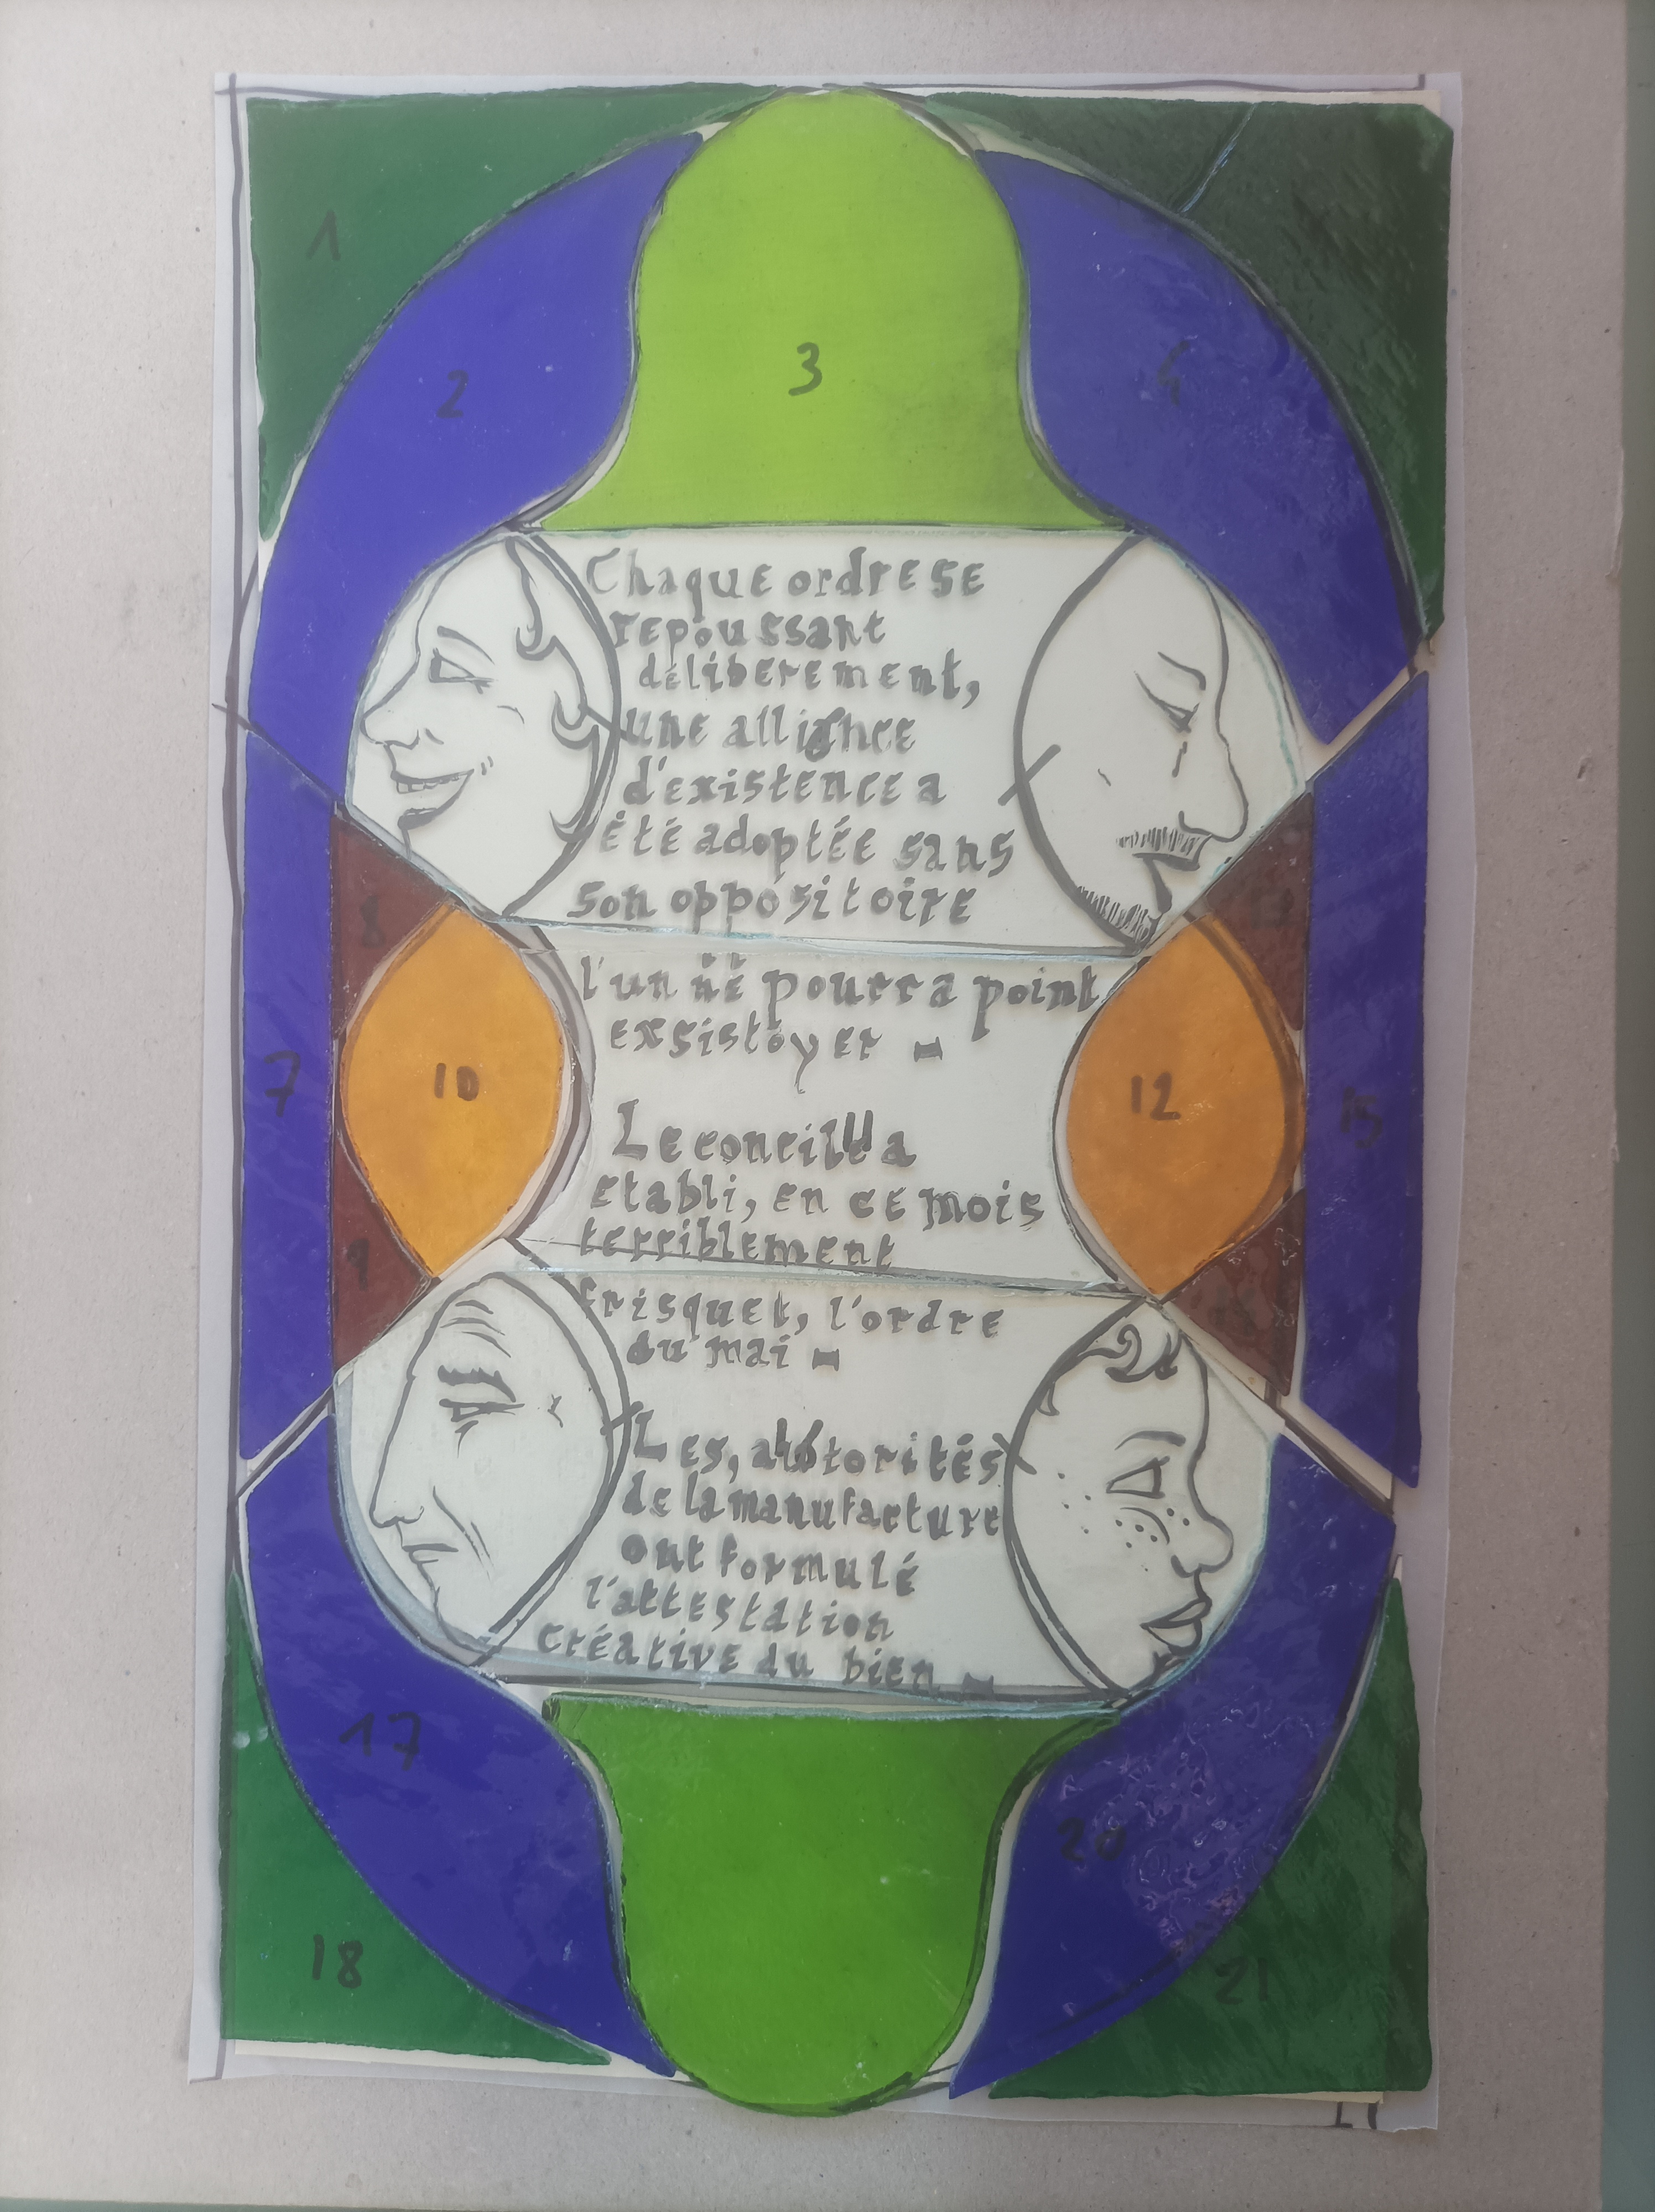 1
2
3
4
Chaque ordre se
repoussant
déliberement,
une alliance
d'existence a
été adoptée sans
son oppositoire
l'un né pourra point
exsistoyer -
Le concill a
etabli, en ce mois
terriblement
frisquet, l'ordre
du mai -
Les, autorités
de la manufacture
ont formulé
l'attestation
créative du bien -
7
8
9
10
12
13
15
17
18
20
21